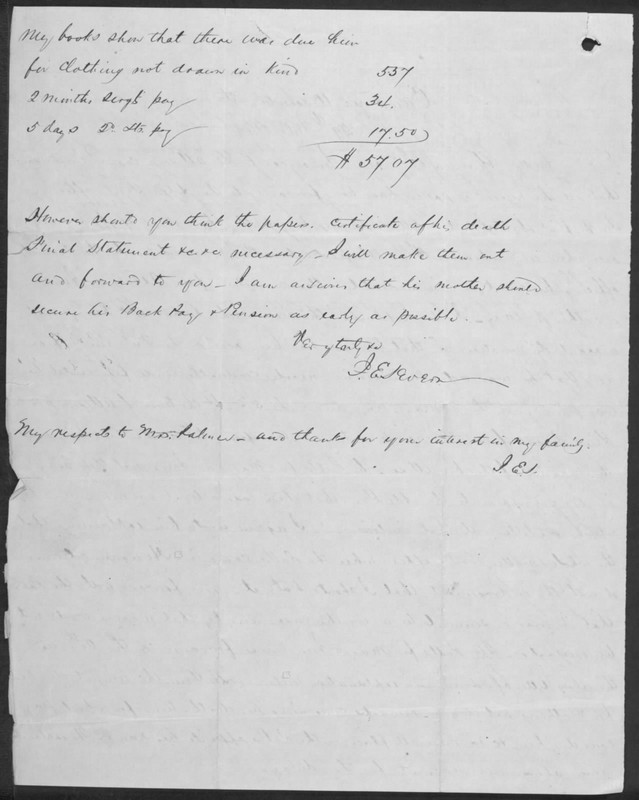 My books show that there was due him
for clothing not drawn in kind 5 57
2 months Sergts pay 34.
5 days 2d Lts. pay 17.50
$ 57 07
However should you think the papers. Certificate of his death
Final Statement &c &c necessary - I will make them out
and forward to you - I am anxious that his mother should
secure his Back Pay & Pension as early as possible.
Very truly &c
My respects to Mrs. - and thanks for your interest in my family.